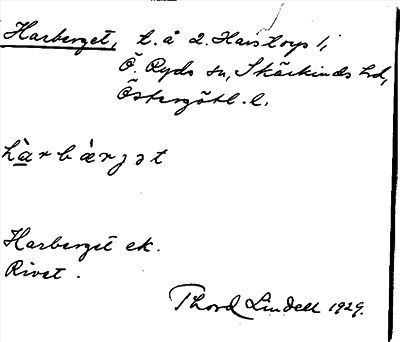 Harberget, t. å 2. Harstorps 1,
Ö. Ryds sn, Skärkinds hd,
Östergötl. l.
hàrbærjət
Harberget ek.
Rivet.
Thord Lindell 1929.